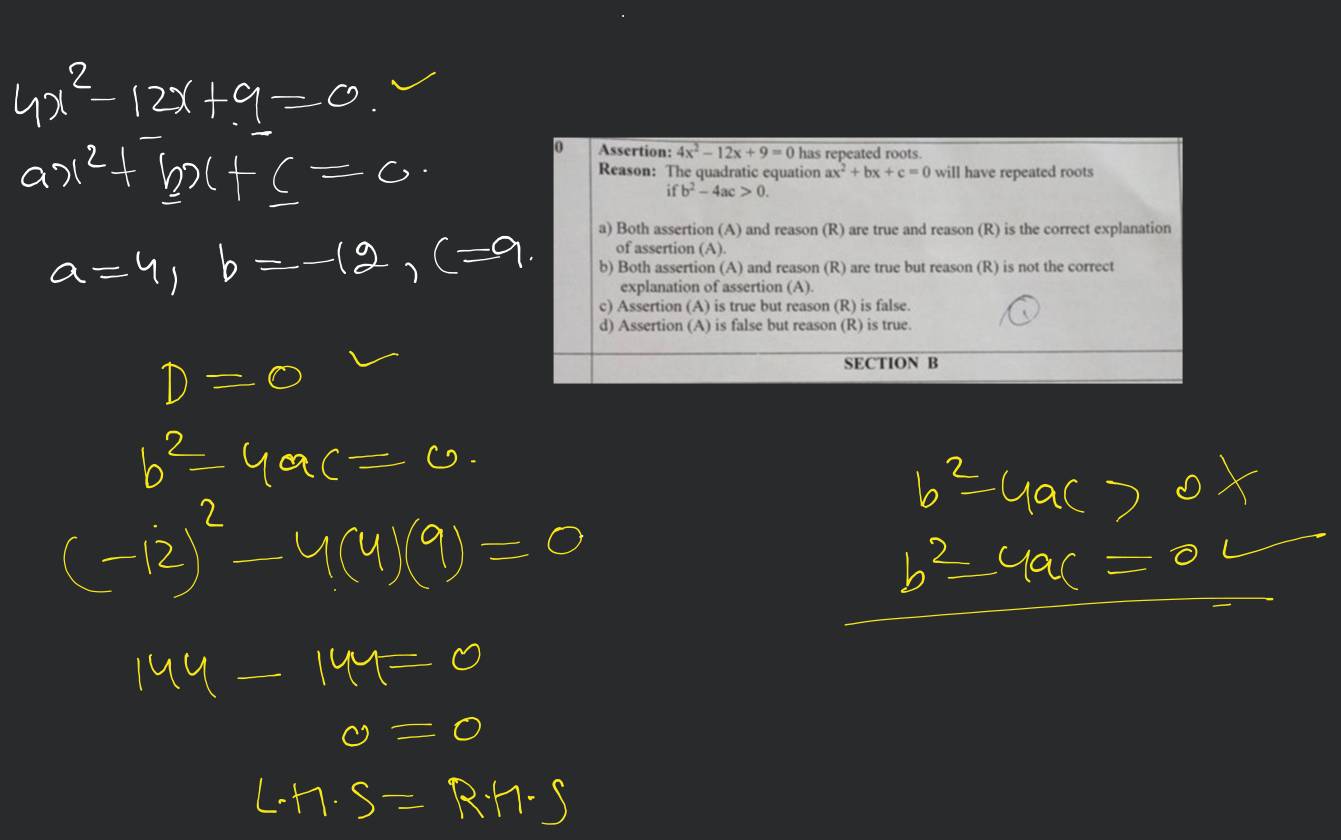 4x² - 12x + 9 = 0. ✓
ax² + bx + c = 0.
a = 4, b = -12, c = 9.
D = 0 ✓
b² - 4ac = 0.
(-12)² - 4(4)(9) = 0
144 - 144 = 0
0 = 0
L.H.S = R.H.S
0
Assertion: 4x² – 12x + 9 = 0 has repeated roots.
Reason: The quadratic equation ax² + bx + c = 0 will have repeated roots
if b² – 4ac > 0.
a) Both assertion (A) and reason (R) are true and reason (R) is the correct explanation
of assertion (A).
b) Both assertion (A) and reason (R) are true but reason (R) is not the correct
explanation of assertion (A).
c) Assertion (A) is true but reason (R) is false.
d) Assertion (A) is false but reason (R) is true.
SECTION B
b² - 4ac > 0 ✗
b² - 4ac = 0 ✓